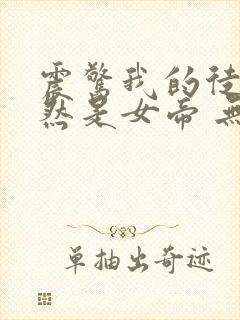 震惊我的徒
然是女帝 無
单抽出奇迹